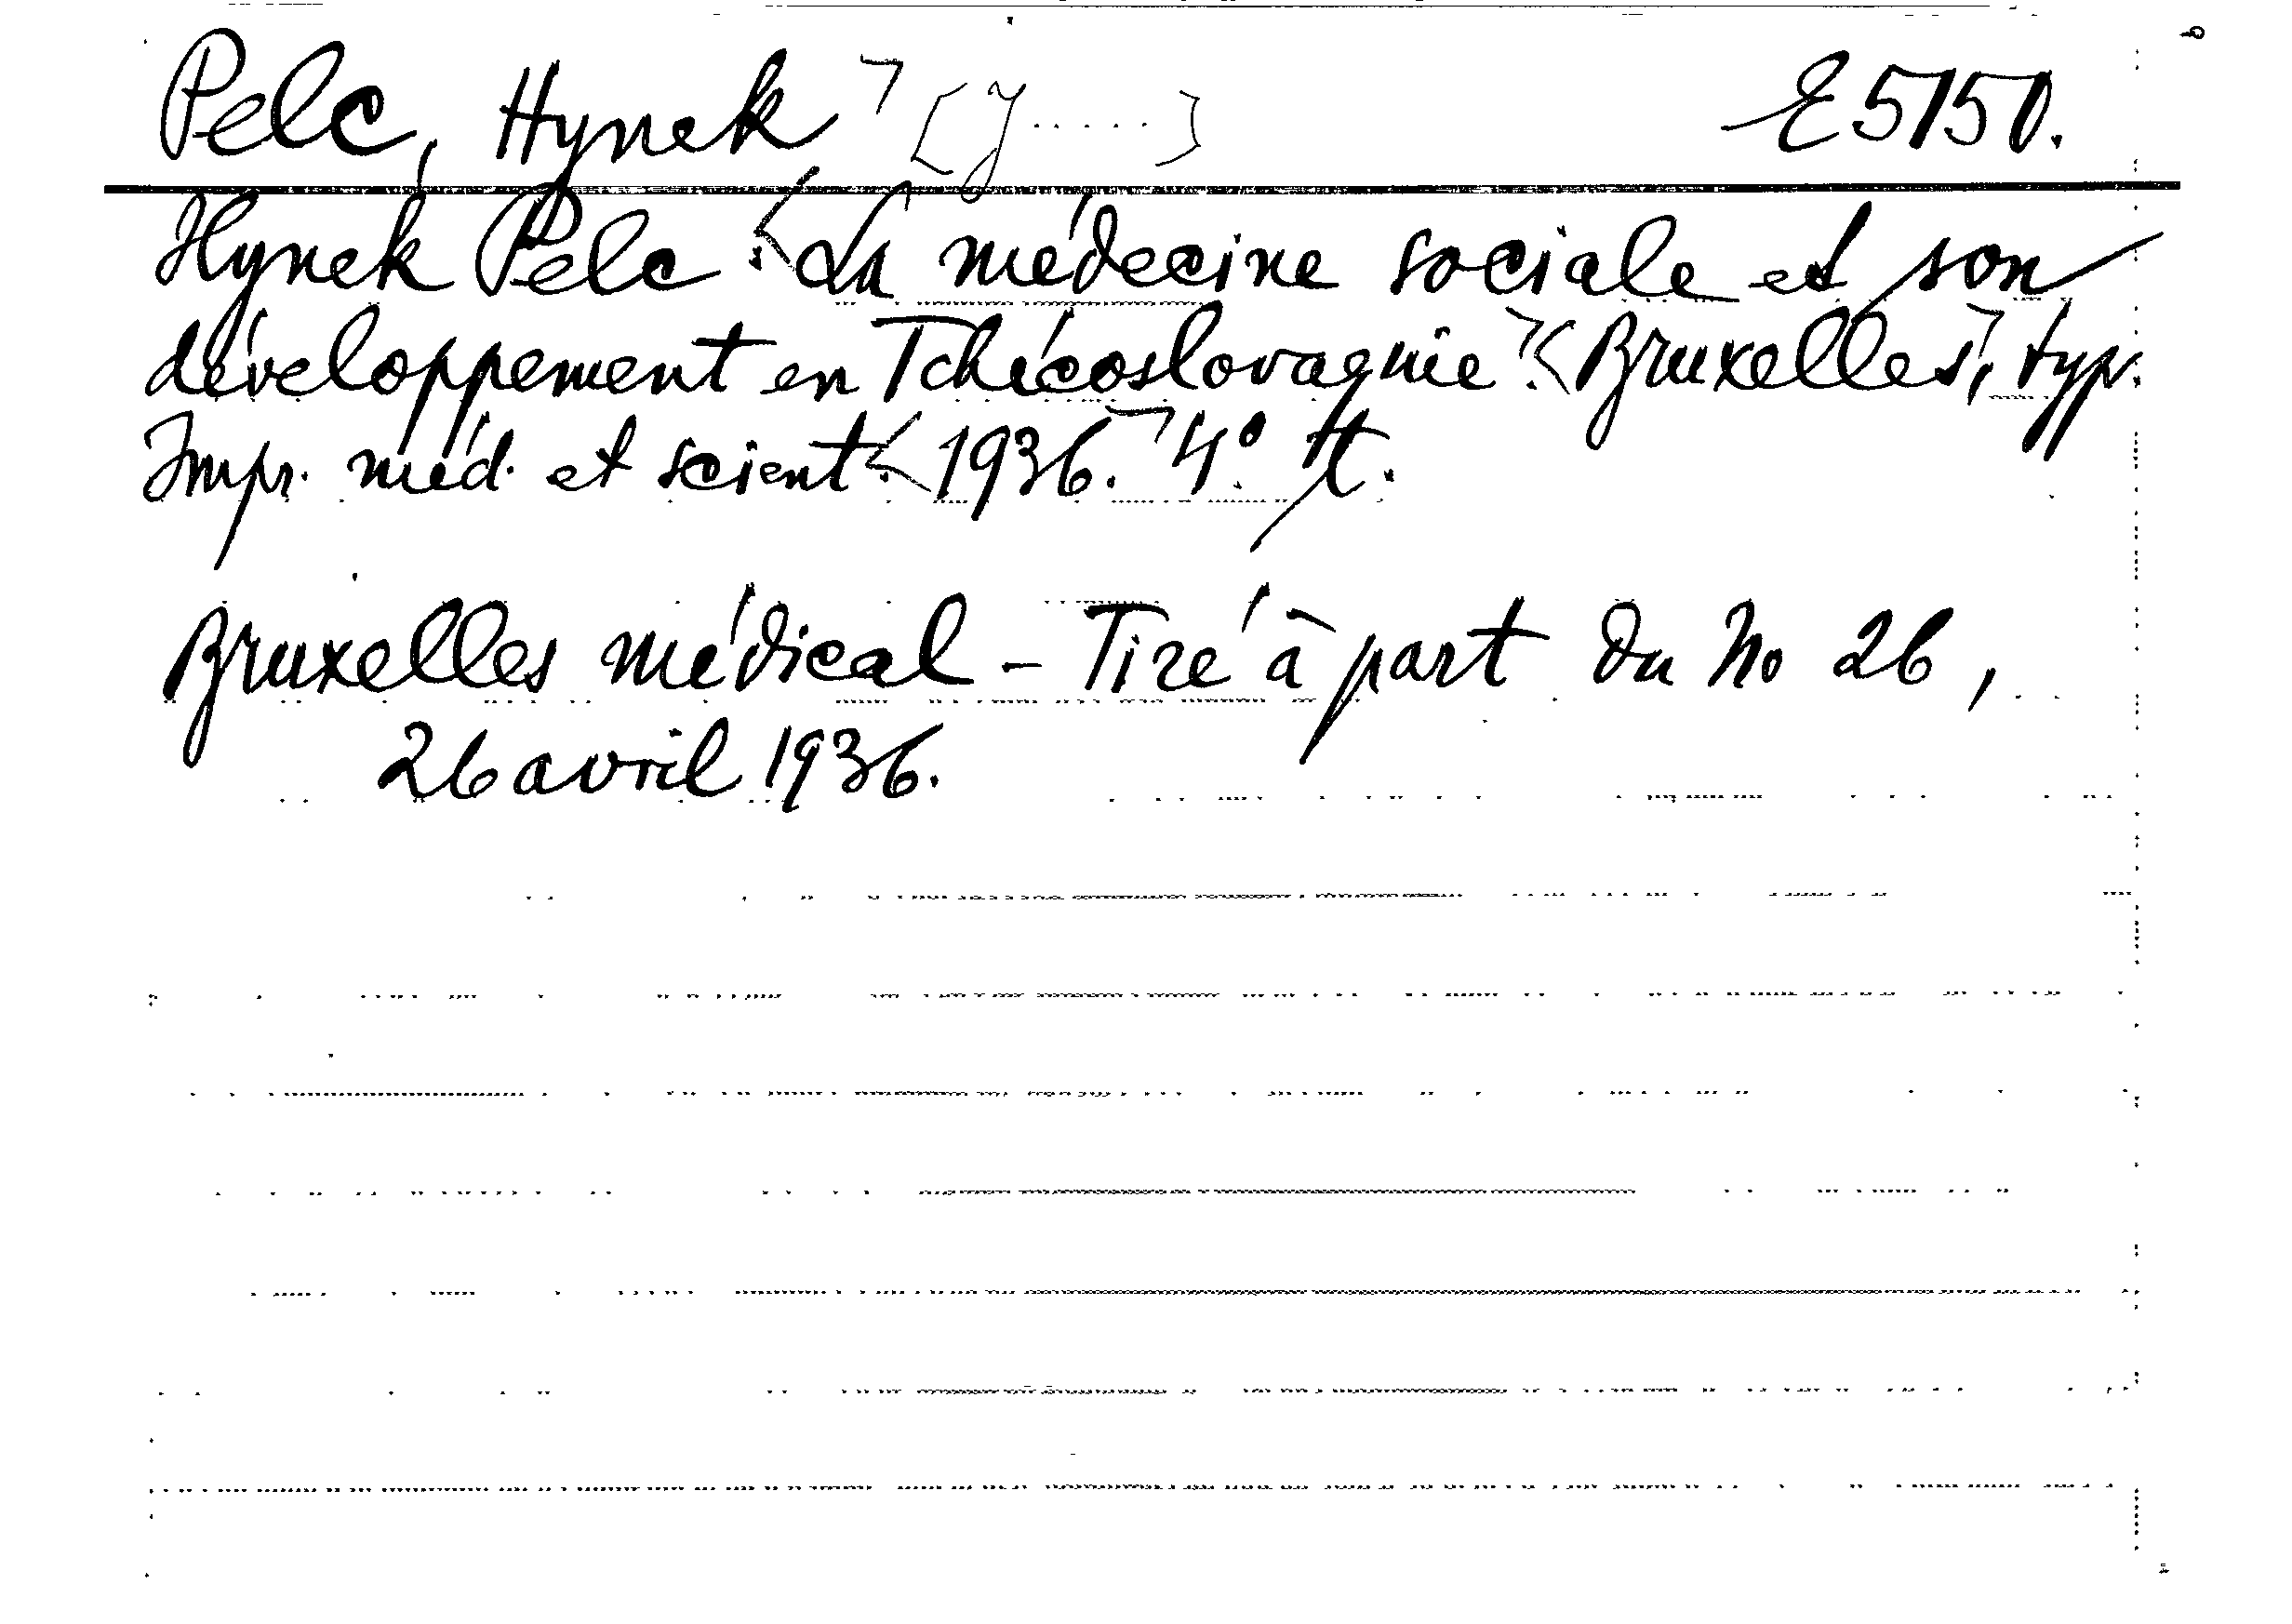 Pelc, Hynek [J.....] E 5150.
Hynek Pelc: La médecine sociale et son
développement en Tchécoslovaquie. Bruxelles, typ.
Impr. méd. et scient. 1936. 4°. tt.
Bruxelles médical - Tiré à part du No 26,
26 avril 1936.